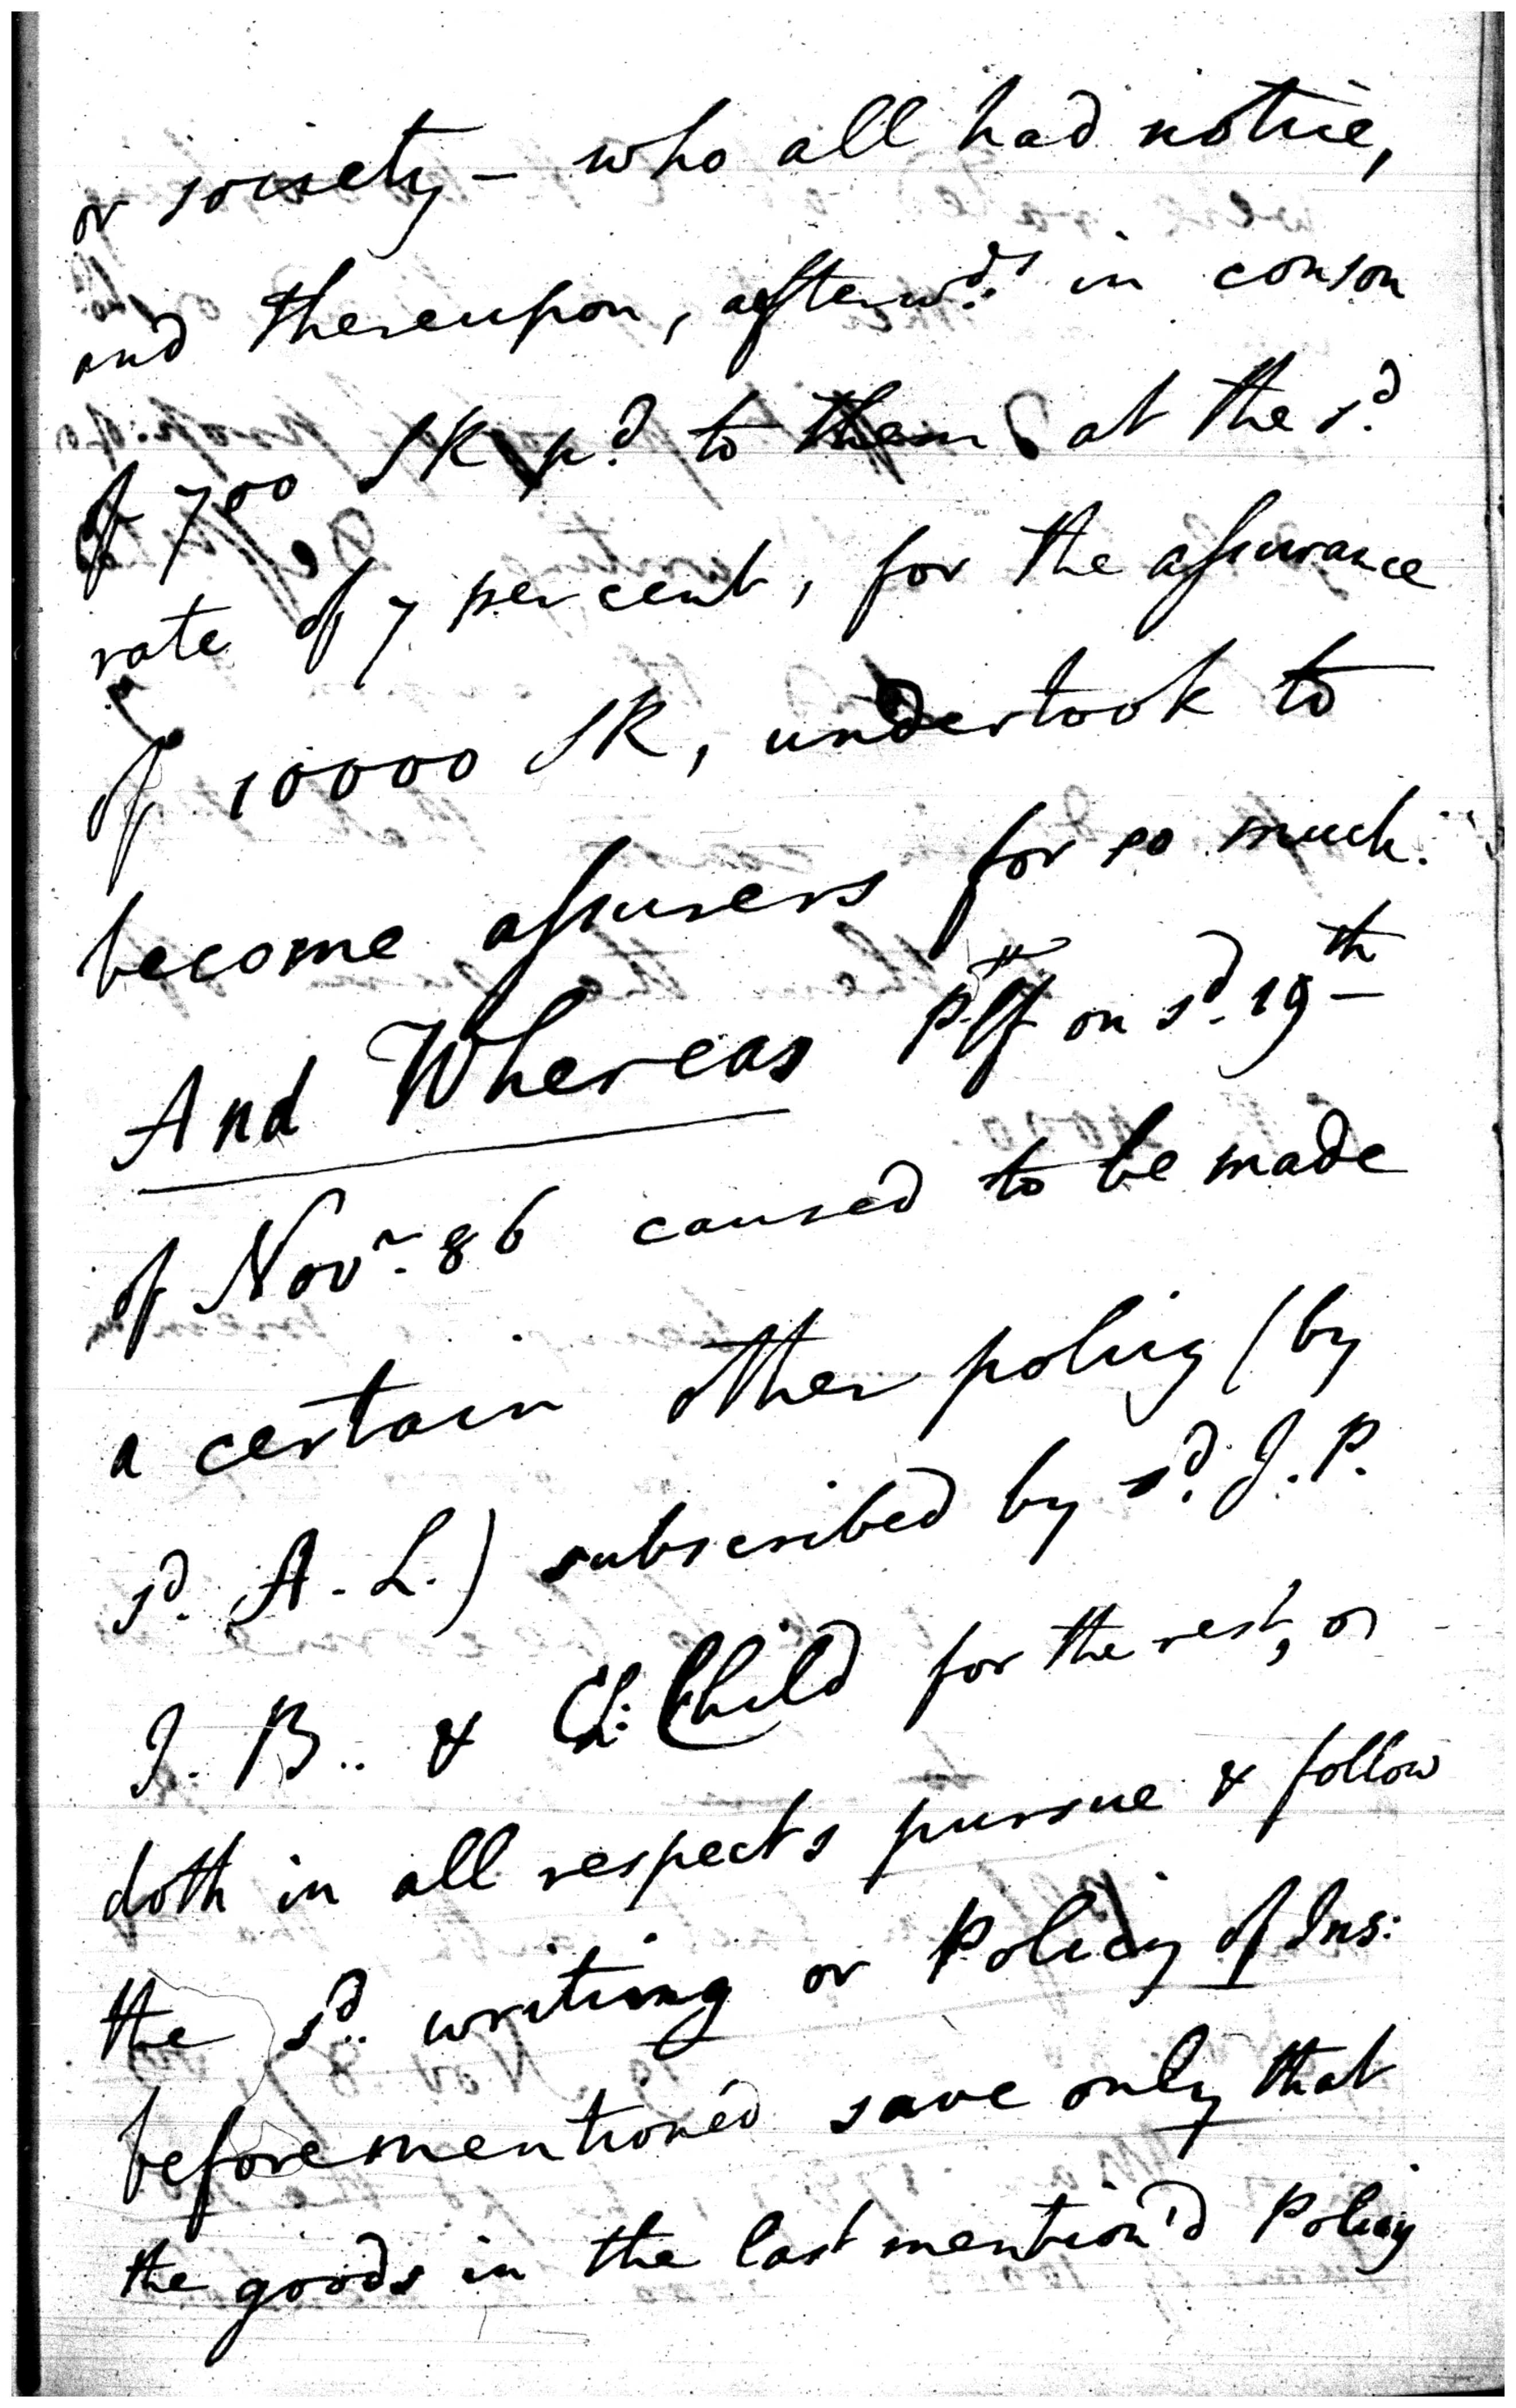 or society – who all had notice,
and thereupon, afterwds. in conson
of 700 SR pd. to them at the sd.
rate of 7 per cent, for the assurance
of 10000 SR, undertook to
become assurers for so much.
And Whereas Pltff on sd. 19th
of Novr. 86 caused to be made
a certain other policy (by
sd. A. L.) subscribed by sd. J. P.
J. B.. & Ch: Child for the rest, or
doth in all respects pursue & follow
the sd. writing or Policy of Ins:
beforementioned save only that
the goods in the last mention'd Policy